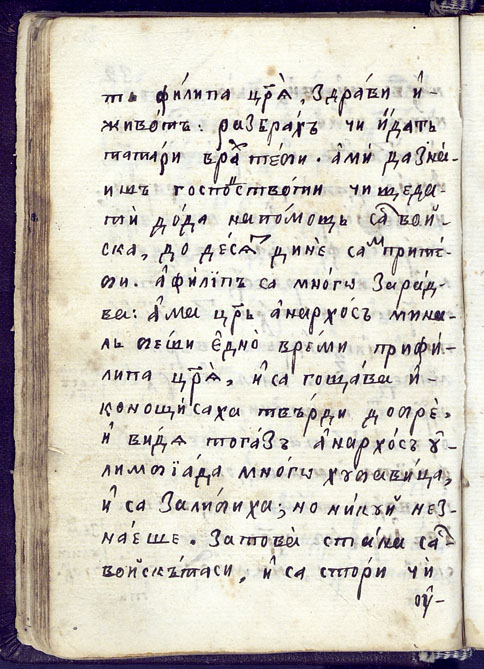 ть фили́па цр҃ѧ̀, здра́ви и҆-
живо́тъ: разбра́хъ чи и҆́датъ
тата́ри вра́х тебѝ. а҆мѝ да зна́-
ишъ госпо́дство́ти чи щеда-
тѝ до́да напо́мощь са вой-
ска, до де́сѧт динѐ сам приті-
би. а҆филі́пъ са мно́гѡ зара́д-
ва: а҆́ма цр҃ь а҆нархо́съ мина-
лъ беши є҆дно̀ вре́ми прифи́-
липа цр҃ѧ̀, и҆́ са гоща́ва и҆-
коно́щи саха твъ́рди добре,
и҆ ви́дѧ тога́зъ а҆нархо́съ ѹ҆-
лимбїа́да мно́гѡ хубави́ца,
и҆́ са зали́биха, но ни́куй не з-
на́еше. затова̀ ста́на сас
войскъ́таси, и҆́ са стори чѝ
ѹ҆-